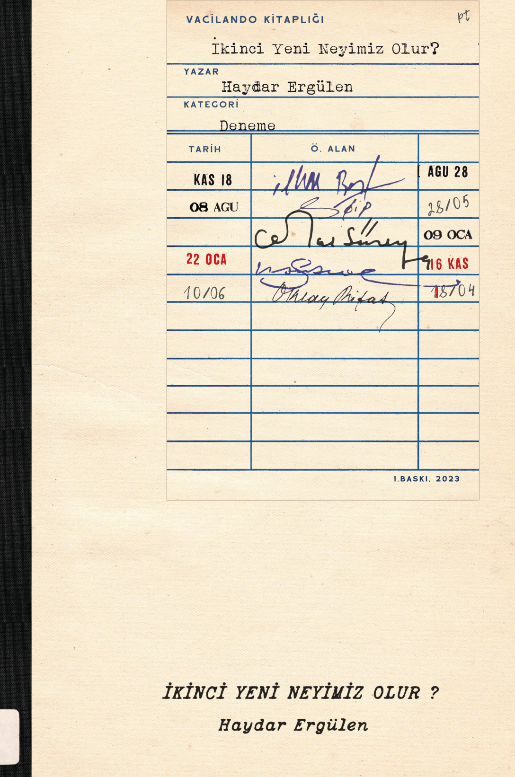 VACİLANDO KİTAPLIĞI
pt
İkinci Yeni Neyimiz Olur?
YAZAR
Haydar Ergülen
KATEGORİ
Deneme
TARİH Ö. ALAN
KAS 18 ilhan Berk AGU 28
08 AGU 28/05
Cemal Süreya 09 OCA
22 OCA 16 KAS
10/06 Oktay Rifat 18/04
1.BASKI, 2023
İKİNCİ YENİ NEYİMİZ OLUR ?
Haydar Ergülen